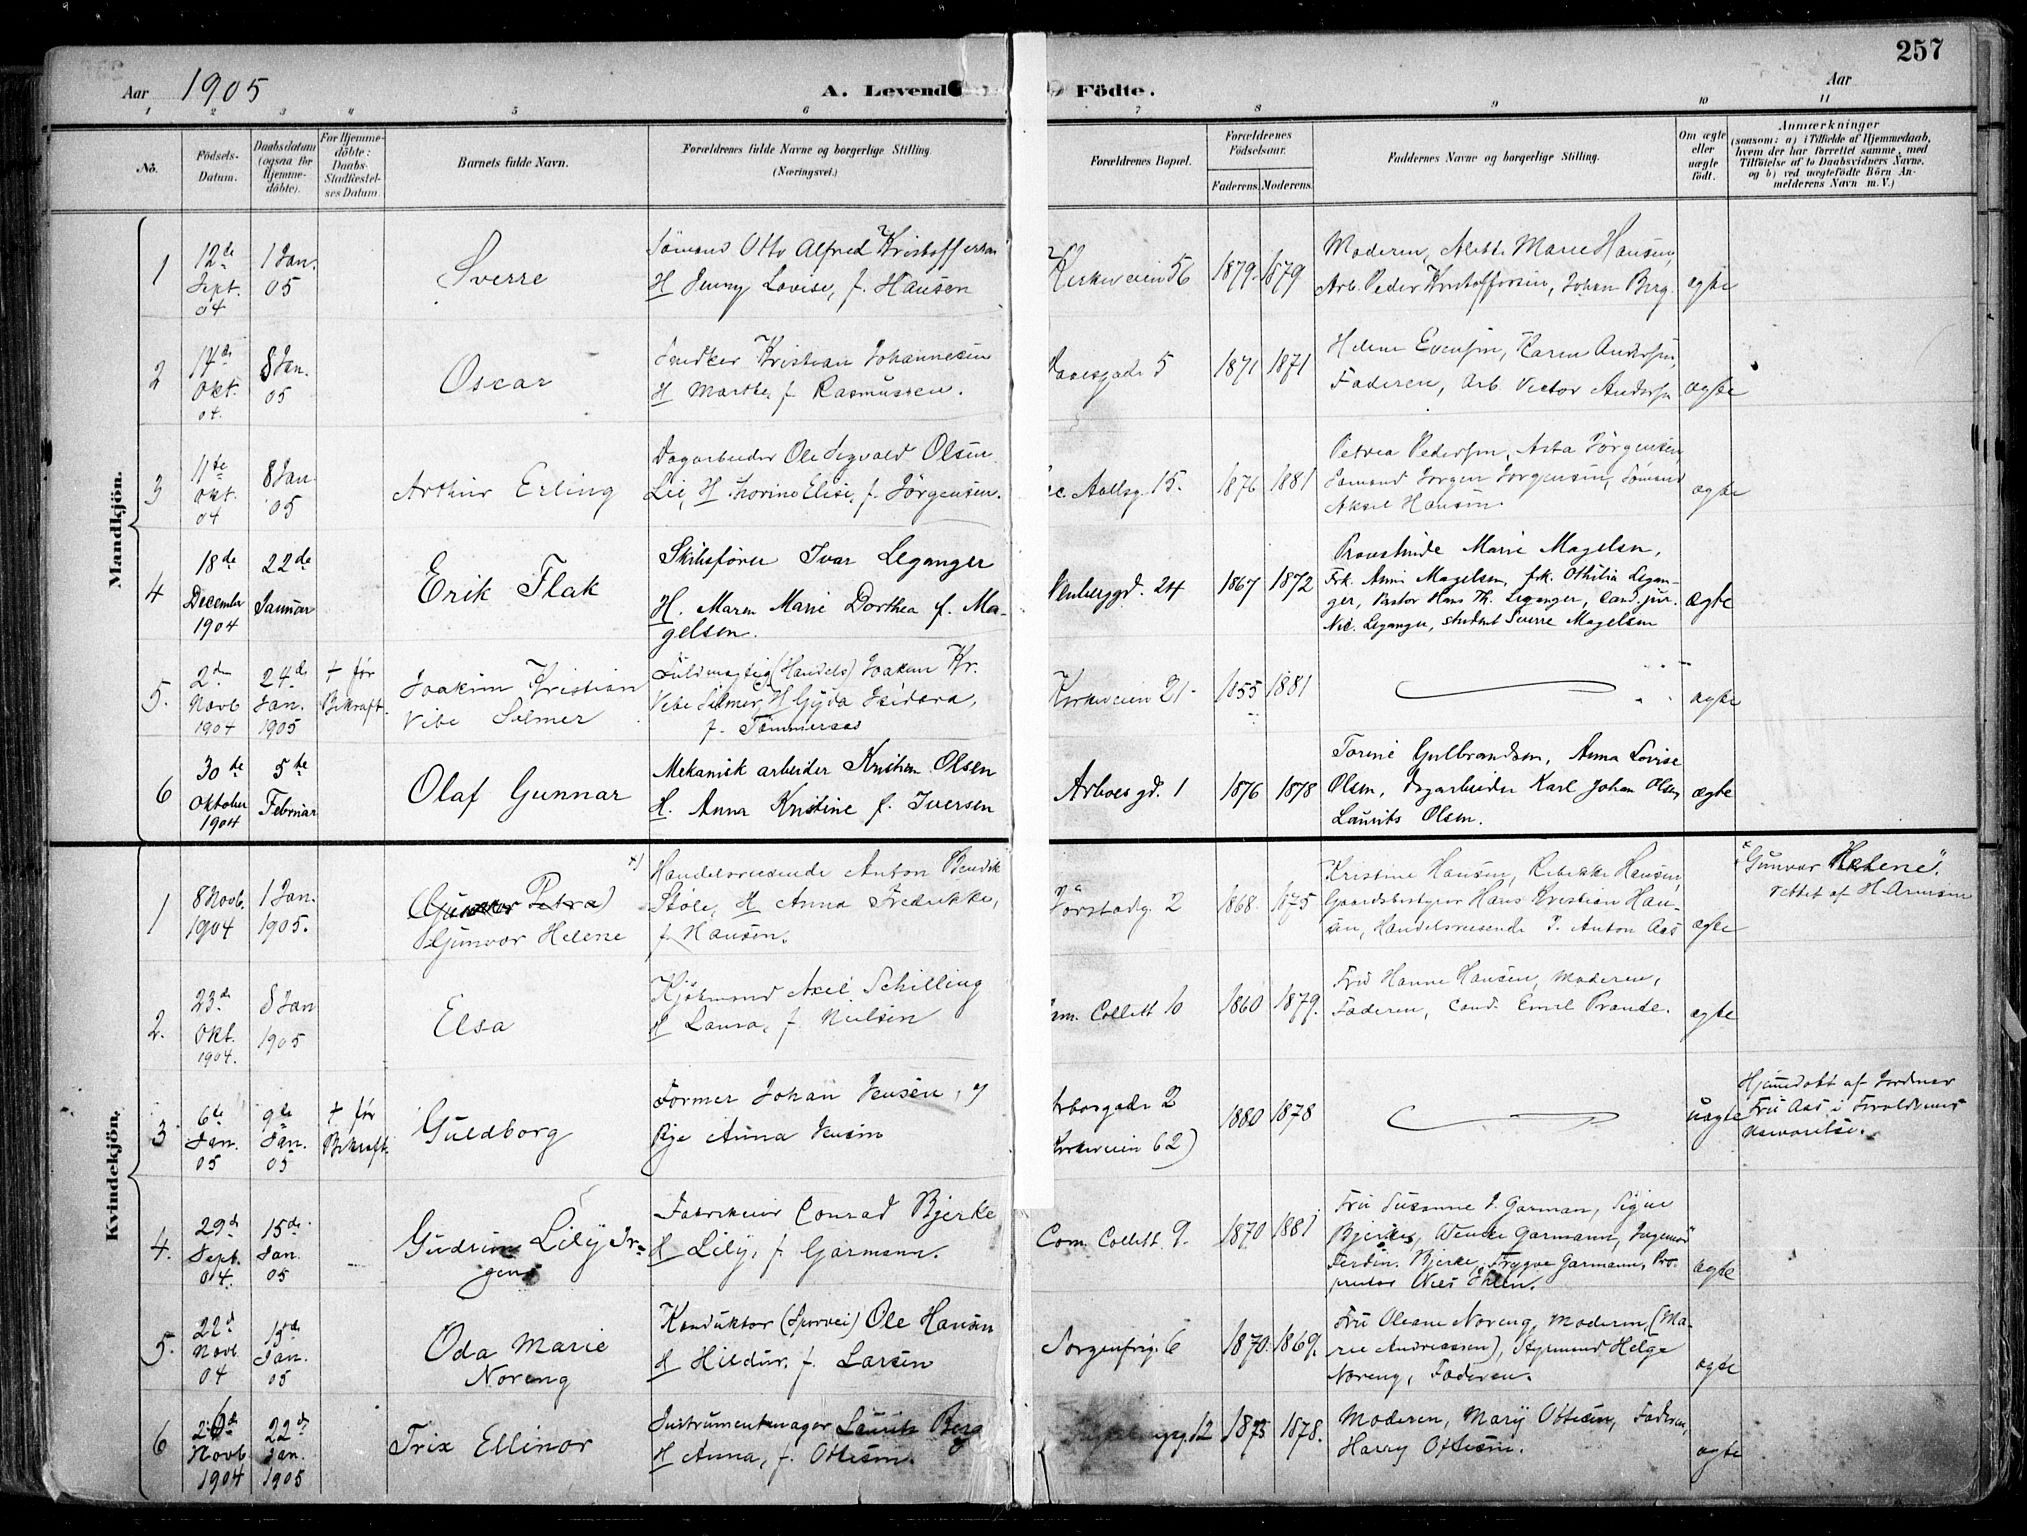 257
Aar 1905
A. Levende Födte.
Aar
1 2 3 4 5 6 7 8 9 10 11
No.
Födsels-Datum.
Daabsdatum (ogsaa for Hjemmedöbte).
For Hjemmedöbte: Daabs-Stadfæstelses Datum.
Barnets fulde Navn.
Forældrenes fulde Navne og borgerlige Stilling. (Næringsvei.)
Forældrenes Bopæl.
Forældrenes Födselsaar.
Faderens. Moderens.
Faddernes Navne og borgerlige Stilling.
Om ægte eller uægte födt.
Anmærkninger
(saasom: a) i Tilfælde af Hjemmedaab, hvem der har forrettet samme, med Tilföielse af to Daabsvidners Navne, og b) ved uægtefödte Börn Anmelderens Navn m. V.)
Mandkjön.
1
12te Sept. 04
1 Jan. 05
Sverre
Sömand Otto Alfred Kristoffersen
H Jenny Lovise, f. Hansen
Kirkeveien 56
1879 1879
Moderen, Marie Hansen,
Arb. Peder Kristoffersen, Johan Berg
ægte
2
14de Okt. 04
8 Jan. 05
Oscar
Snedker Kristian Johannesen
H Marthe, f. Rasmussen.
5
1871 1871
Helene Evensen, Karen Andersen,
Faderen, Arb. Victor Andersen
ægte
3
11te Okt. 04
8 Jan. 05
Arthur Erling
Dagarbeider Ole Sigvald Olsen
Lie, H Thorine Elise, f. Jörgensen.
Aallsg. 15.
1876 1881
Petrea Pedersen, Asta Jörgensen,
Sömand Jörgen Jörgensen, Sömand
Aksel Hansen
ægte
4
18de December 1904
22de Januar
Erik Flak
Skibsförer Ivar Leganger
H. Maren Marie Dorthea f. Ma-
gelsen.
24
1867 1872
Provstinde Marie Magelsen,
Frk. Anni Magelsen, frk. Othilia Legan-
ger, Pastor Hans Th. Leganger, Cand. jur.
Nic. Leganger, student Sverre Magelsen
ægte
5.
2den Novb 1904
24de Jan. 1905
+ för Bekræft.
Joakim Kristian
Vibe Selmer
Fuldmægtig (Handels) Joakim Kr.
Vibe Selmer, H Gyda Isidora,
f. Tömmeraas
Kirkeveien 21
1855 1881
ægte
6
30te Oktober 1904
5te Februar
Olaf Gunnar
Mekanisk arbeider Kristian Olsen
H. Anna Kristine f. Iversen
Arboes gd. 1
1876 1878
Torine Gulbrandsen, Anna Lovise
Olsen, Dagarbeider Karl Johan Olsen,
Laurits Olsen.
ægte
Kvindekjön.
1
8 Novb. 1904
1 Jan. 1905.
(Gunvor Petra) x)
Gunvor Helene
Handelsreisende Anton Henrik
Stöle, H Anna Fredrikke,
f. Hansen.
2
1868. 1875
Kristine Hansen, Rebekke Hansen,
Gaardsbestyrer Hans Kristian Han-
sen, Handelsreisende P. Anton Aas
ægte
"Gunvor Helene"
rettet af H. Arnesen
2.
23de Okt. 1904.
8 Jan 1905
Elsa
Kjöbmand Axel Schilling
H Laura, f. Nielsen
Cam. Collett 10
1860 1879.
Fru Hanne Hansen, Moderen,
Faderen, Cand. Emil Prande.
ægte
3
6te Jan. 05
9de Jan. 05
+ för Bekræft.
Guldborg
Former Johan Jensen, og
Pige Anna Jensen
Arboesgade 2
Kirkeveien 62)
1880 1878
uægte
Hjemmedöbt af Jordmor
Fru Aas i Forældrenes
Nærværelse.
4.
29de Sept. 04.
15de Jan. 05
Gudrun Lily Jr-
gens
Fabrikeier Conrad Bjerke
H Lily, f. Garmann.
Cam. Collett 9.
1870 1881
Fru Susanne P. Garman, Signe
Bjerke, Wenke Garmann, Ingeniör
Ferdin. Bjerke, Trygve Garmann, Pro-
prietær Nils Ihlen.
ægte
5.
22de Novb. 04
15de Jan. 05
Oda Marie
Noreng
Konduktör (Sporvei) Ole Hansen
H Hildur, f. Larsen
Sorgenfrig. 6
1870 1869.
Fru Oleane Noreng, Moderen, (Ma-
rie Andreassen), Styrmand Helge
Noreng, Faderen.
ægte
6
26de Novb. 1904
22de Jan. 1905
Trix Ellinor
Instrumentmager Laurits Berg
H Anna, f. Ottesen.
12
1873 1878.
Moderen, Mary Ottesen, Faderen,
Harry Ottesen.
ægte